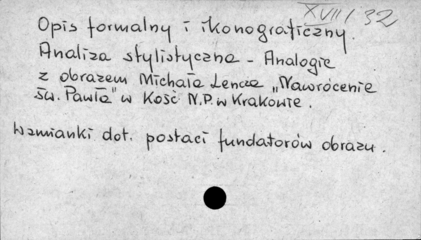 XVIII/32
Opis formalny i ikonograficzny.
Analiza stylistyczna - Analogie
z obrazem Michała Lencza „Nawrócenie
św. Pawła" w Kość N.P. w Krakowie.
Wzmianki dot. postaci fundatorów obrazu.